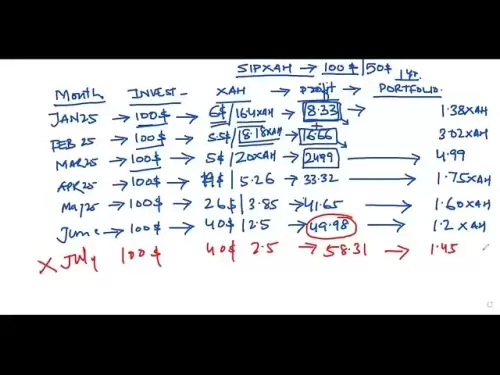 SIPXAH → 100$ | 50$
1yr.
Month INVEST - XAH → profit → PORTFOLIO
JAN25 → 100$ → 6$ / 16.4XAH → 8.33 → 1.38XAH
FEB 25 → 100$ → 5.5$ / 18.18XAH → 16.66 3.02XAH
MAR25 → 100$ → 5$ / 20XAH → 2499 → 4.99
APR25 → 100$ → | 5.26 → 33.32 → 1.75XAH
May25 → 100$ → 26$ | 3.85 → 41.65 → 1.60XAH
June → 100$ → 40$ | 2.5 → 49.98 → 1.2 XAH
X July 100$ 40$ 2.5 → 58.31 → 1.45